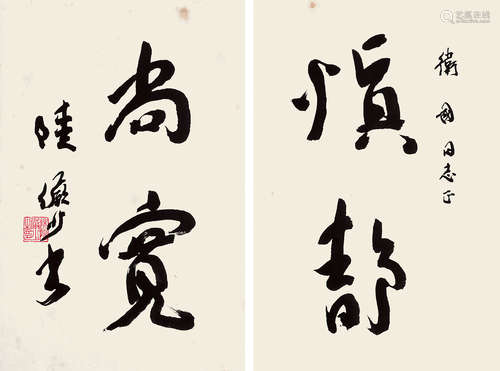 衛國同志正
慎静
尚寬
陸儼少書